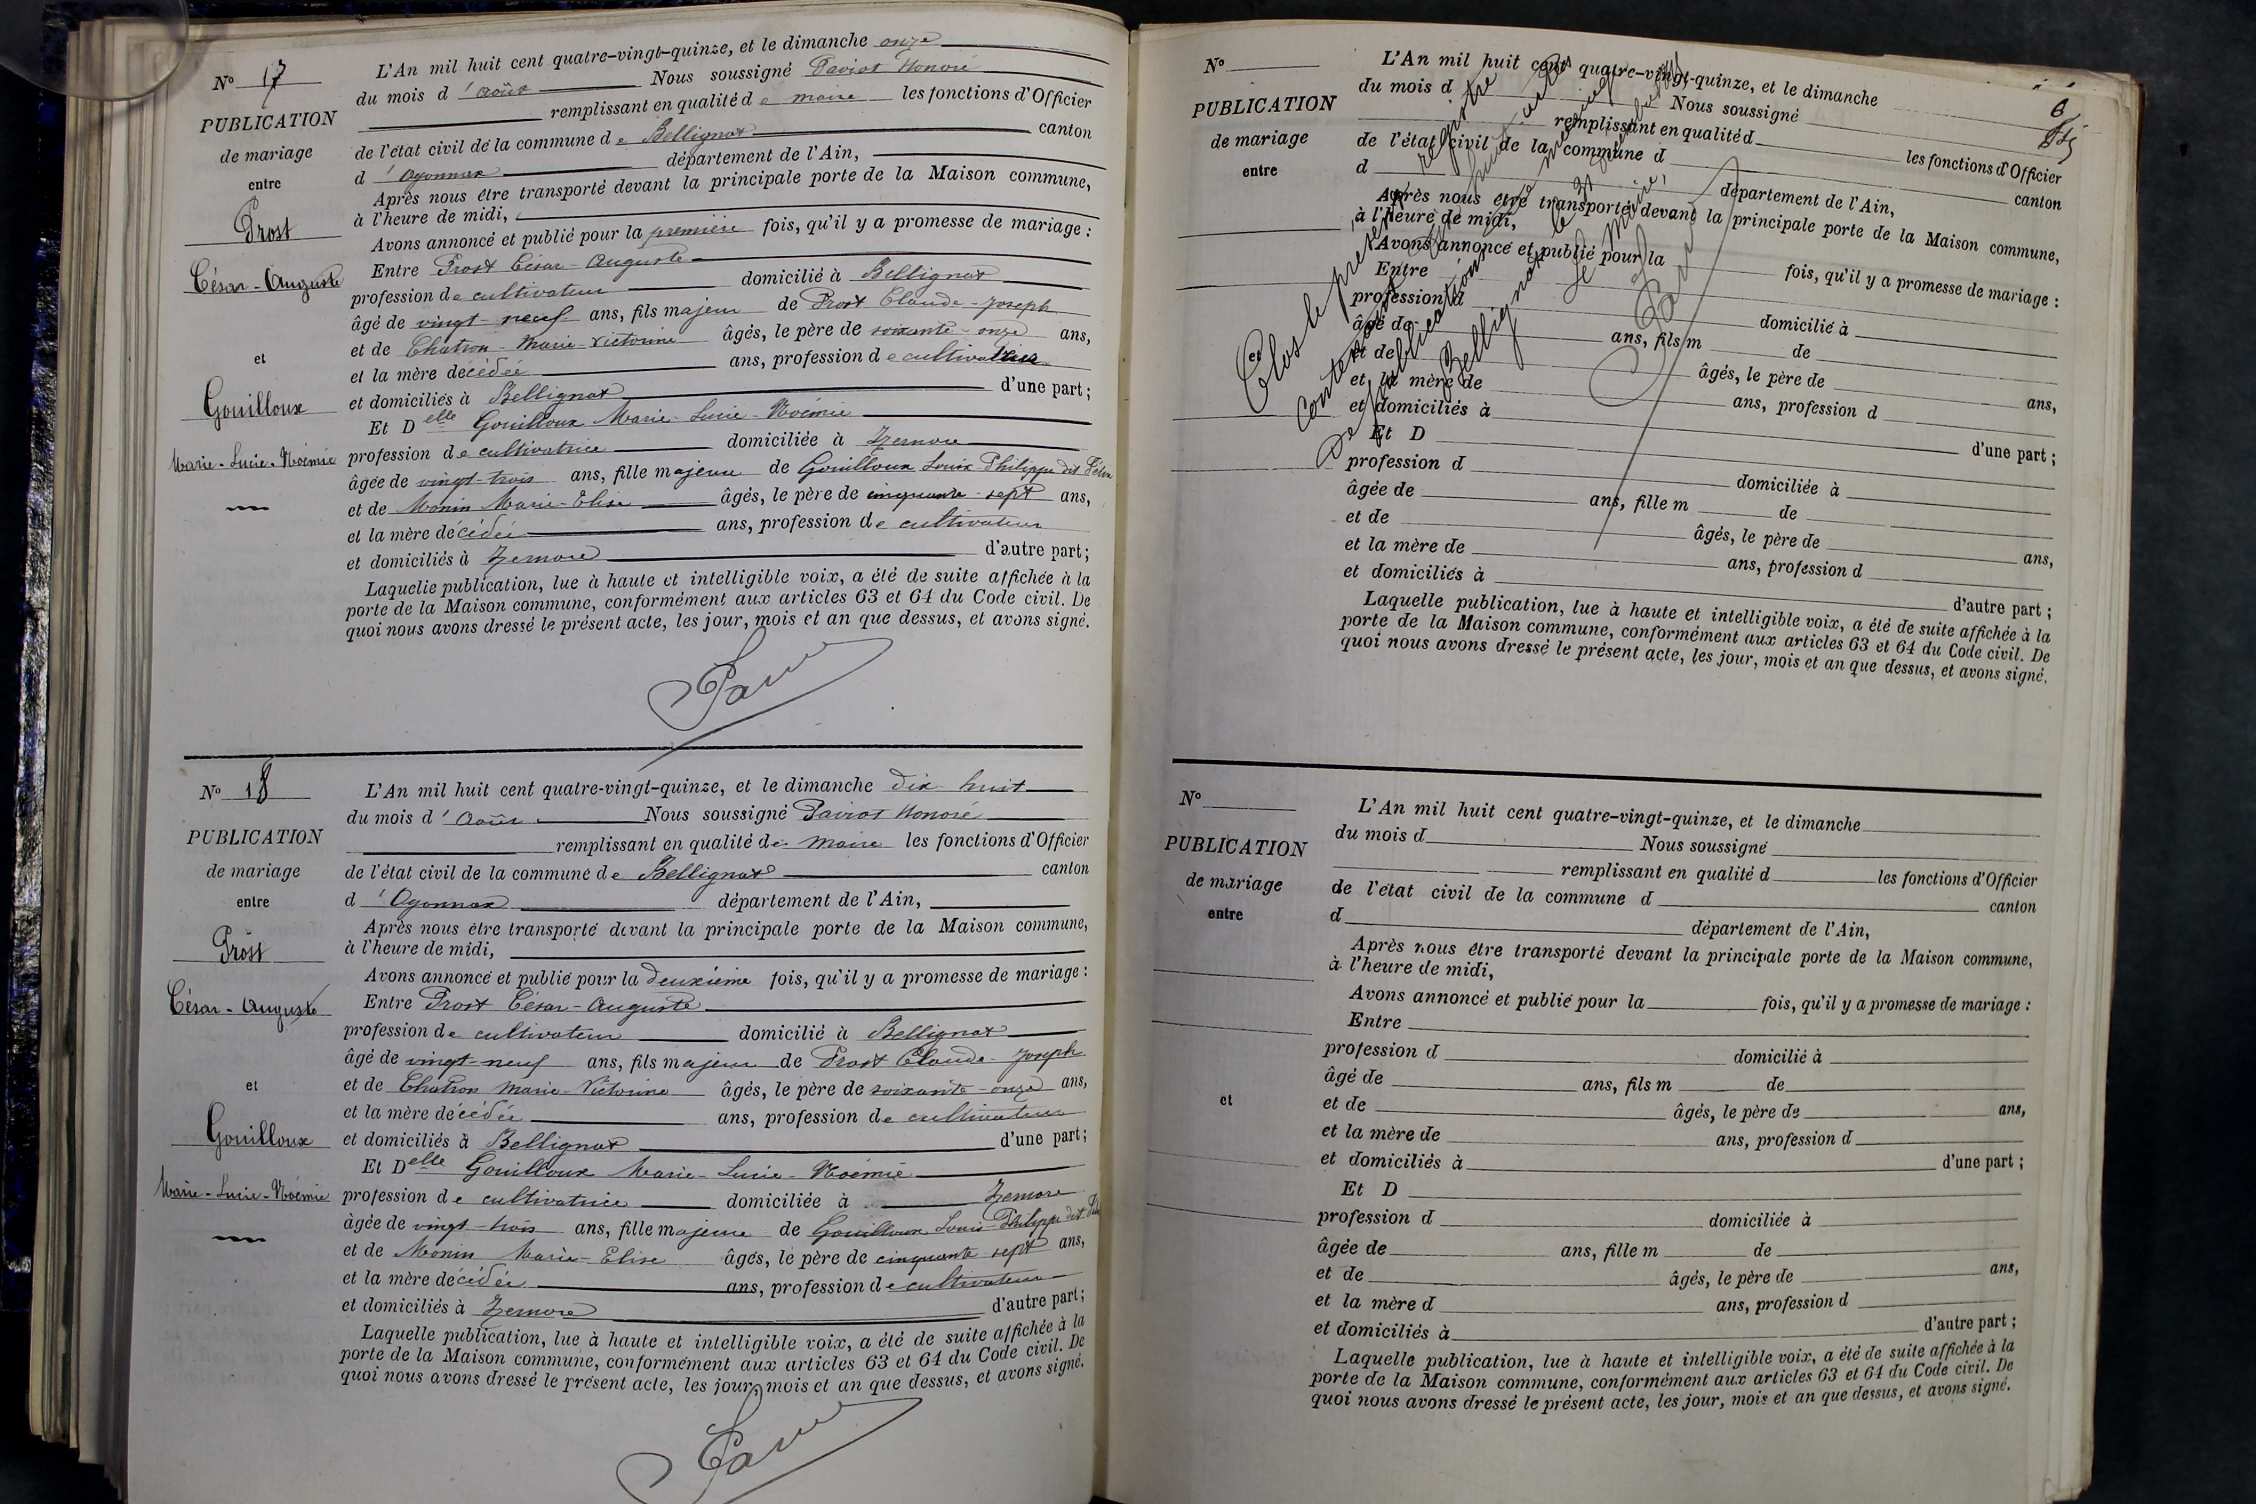 N° 17
PUBLICATION
de mariage
entre
Prost
César-Auguste
et
Gouilloux
Marie-Lucie-Noémie
L'An mil huit cent quatre-vingt-quinze, et le dimanche onze
du mois d'août Nous soussigné Paviot Honoré
remplissant en qualité de maire les fonctions d'Officier
de l'état civil de la commune de Bellignat canton
d'Oyonnax département de l'Ain,
Après nous être transporté devant la principale porte de la Maison commune,
à l'heure de midi,
Avons annoncé et publié pour la première fois, qu'il y a promesse de mariage :
Entre Prost César-Auguste
profession de cultivateur domicilié à Bellignat
âgé de vingt neuf ans, fils majeur de Prost Claude-Joseph
et de Chatron Marie-Victorine âgés, le père de soixante-onze ans,
et la mère décédée ans, profession de cultivateur
et domiciliés à Bellignat d'une part;
Et Delle Gouilloux Marie-Lucie-Noémie
profession de cultivatrice domiciliée à Izernore
âgée de vingt-trois ans, fille majeure de Gouilloux Louis Philippe dit Félix
et de Monin Marie-Elise âgés, le père de cinquante-sept ans,
et la mère décédée ans, profession de cultivateur
et domiciliés à Izernore d'autre part;
Laquelle publication, lue à haute et intelligible voix, a été de suite affichée à la
porte de la Maison commune, conformément aux articles 63 et 64 du Code civil. De
quoi nous avons dressé le présent acte, les jour, mois et an que dessus, et avons signé.
N° 18
PUBLICATION
de mariage
entre
Prost
César-Auguste
et
Gouilloux
Marie-Lucie-Noémie
L'An mil huit cent quatre-vingt-quinze, et le dimanche dix huit
du mois d'août Nous soussigné Paviot Honoré
remplissant en qualité de maire les fonctions d'Officier
de l'état civil de la commune de Bellignat canton
d'Oyonnax département de l'Ain,
Après nous être transporté devant la principale porte de la Maison commune,
à l'heure de midi,
Avons annoncé et publié pour la deuxième fois, qu'il y a promesse de mariage :
Entre Prost César-Auguste
profession de cultivateur domicilié à Bellignat
âgé de vingt-neuf ans, fils majeur de Prost Claude-Joseph
et de Chatron Marie-Victorine âgés, le père de soixante-onze ans,
et la mère décédée ans, profession de cultivateur
et domiciliés à Bellignat d'une part;
Et Delle Gouilloux Marie-Lucie-Noémie
profession de cultivatrice domiciliée à Izernore
âgée de vingt-trois ans, fille majeure de Gouilloux Louis-Philippe dit Félix
et de Monin Marie-Elise âgés, le père de cinquante-sept ans,
et la mère décédée ans, profession de cultivateur
et domiciliés à Izernore d'autre part;
Laquelle publication, lue à haute et intelligible voix, a été de suite affichée à la
porte de la Maison commune, conformément aux articles 63 et 64 du Code civil. De
quoi nous avons dressé le présent acte, les jour, mois et an que dessus, et avons signé.
6
N°
PUBLICATION
de mariage
entre
et
L'An mil huit cent quatre-vingt-quinze, et le dimanche
du mois d Nous soussigné
remplissant en qualité d les fonctions d'Officier
de l'état civil de la commune d canton
d département de l'Ain,
Après nous être transporté devant la principale porte de la Maison commune,
à l'heure de midi,
Avons annoncé et publié pour la fois, qu'il y a promesse de mariage :
Entre
profession d domicilié à
âgé de ans, fils m de
et de âgés, le père de ans,
et la mère de ans, profession d
et domiciliés à d'une part ;
Et D
profession d domiciliée à
âgée de ans, fille m de
et de âgés, le père de ans,
et la mère de ans, profession d
et domiciliés à d'autre part ;
Laquelle publication, lue à haute et intelligible voix, a été de suite affichée à la
porte de la Maison commune, conformément aux articles 63 et 64 du Code civil. De
quoi nous avons dressé le présent acte, les jour, mois et an que dessus, et avons signé.
Clos le présent registre
contenant dix huit actes
de publication de mariages
Bellignat le 31
Le Maire,
N°
PUBLICATION
de mariage
entre
et
L'An mil huit cent quatre-vingt-quinze, et le dimanche
du mois d Nous soussigné
remplissant en qualité d les fonctions d'Officier
de l'état civil de la commune d canton
d département de l'Ain,
Après nous être transporté devant la principale porte de la Maison commune,
à l'heure de midi,
Avons annoncé et publié pour la fois, qu'il y a promesse de mariage :
Entre
profession d domicilié à
âgé de ans, fils m de
et de âgés, le père de ans,
et la mère de ans, profession d
et domiciliés à d'une part ;
Et D
profession d domiciliée à
âgée de ans, fille m de
et de âgés, le père de ans,
et la mère d ans, profession d
et domiciliés à d'autre part ;
Laquelle publication, lue à haute et intelligible voix, a été de suite affichée à la
porte de la Maison commune, conformément aux articles 63 et 64 du Code civil. De
quoi nous avons dressé le présent acte, les jour, mois et an que dessus, et avons signé.